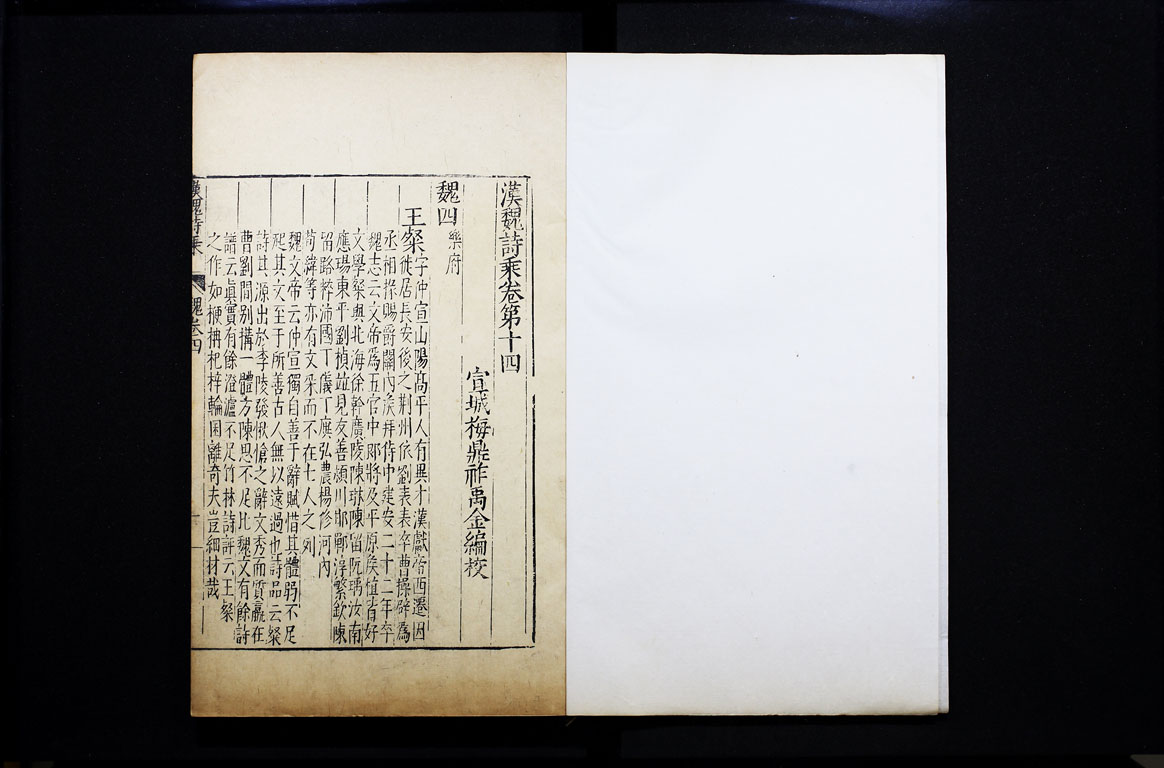 漢魏詩乘卷第十四
宣城梅鼎祚禹金編校
魏四 樂府
王粲 字仲宣山陽高平人有異才漢獻帝西遷因
徙居長安後之荆州依劉表表卒曹操辟爲
丞相掾賜爵關內侯拜侍中建安二十二年卒
魏志云文帝爲五官中郎將及平原侯植皆好
文學粲與北海徐幹廣陵陳琳陳留阮瑀汝南
應瑒東平劉楨竝見友善潁川邯鄲淳繁欽陳
留路粹沛國丁儀丁廙弘農楊修河內
荀緯等亦有文采而不在七人之列
魏文帝云仲宣獨自善于辭賦惜其體弱不足
起其文至于所善古人無以遠過也詩品云粲
詩其源出於李陵發愀愴之辭文秀而質羸在
曹劉間別搆一體方陳思不足比魏文有餘詩
譜云眞實有餘澄濾不足竹林詩評云王粲
之作如梗枏杞梓輪囷離奇夫豈細材哉
漢魏詩乘 魏卷四 一